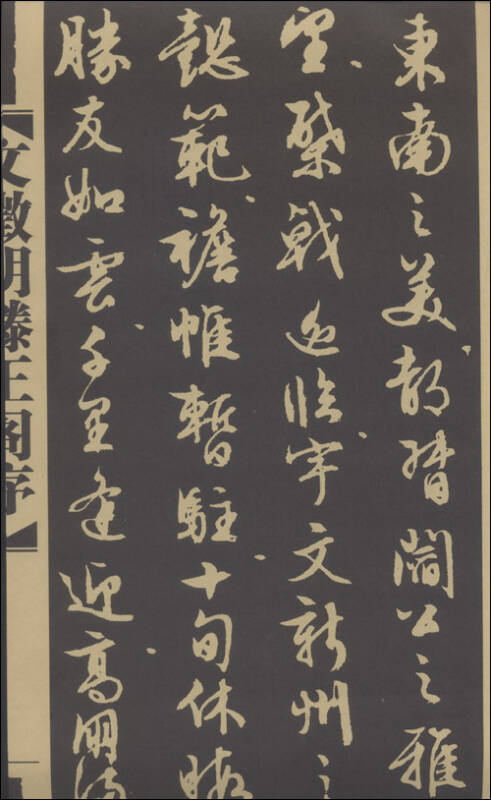 東南之美都督閻公之雅
望棨戟遥臨宇文新州之
懿範襜帷暫駐十旬休暇
勝友如雲千里逢迎高朋滿
文徵明滕王阁序